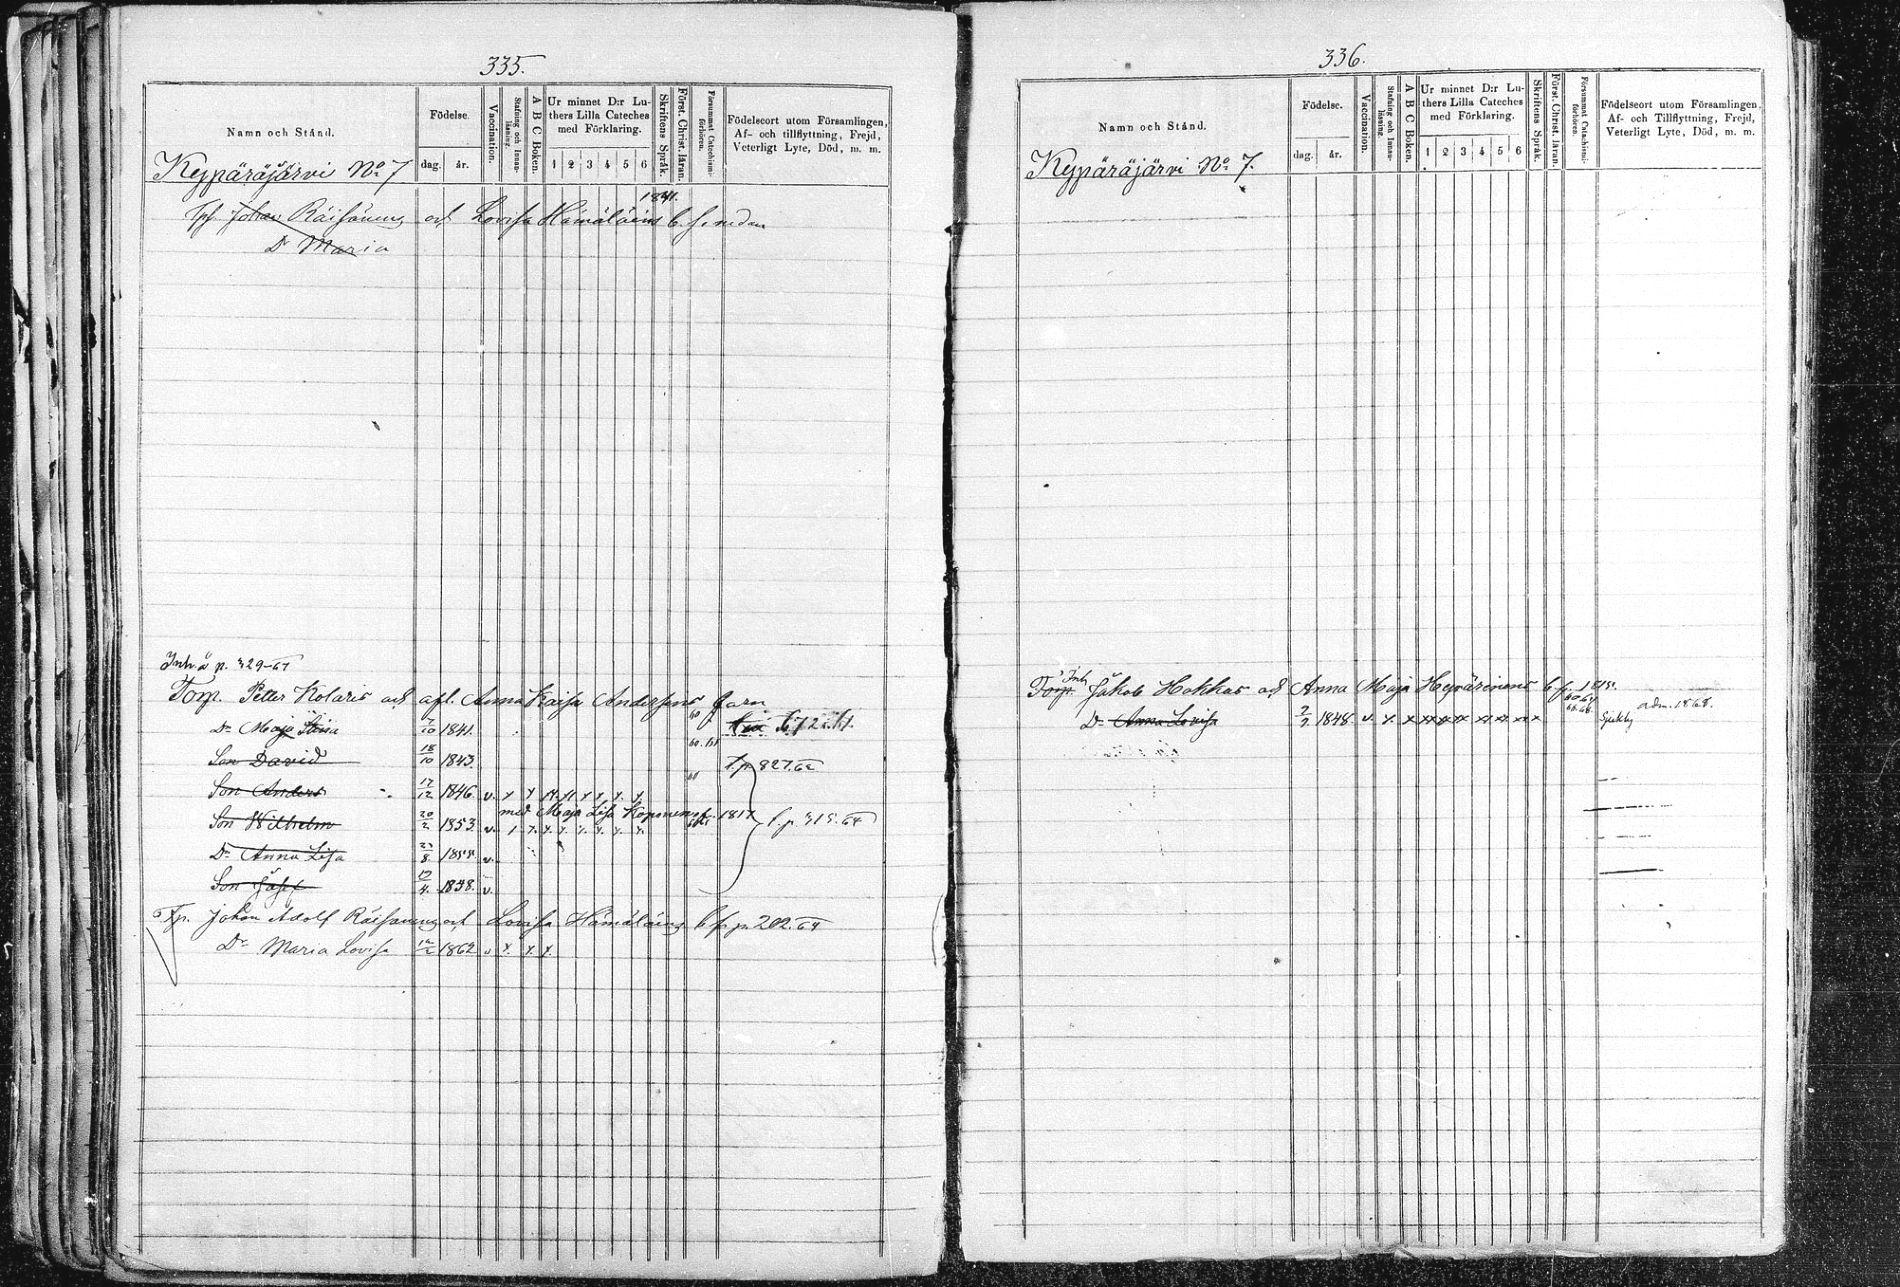 335.
Namn och Stånd.
Födelse.
dag. år.
Vaccination.
Stafning och Innanläsning.
A B C Boken.
Ur minnet D:r Luthers Lilla Cateches med Förklaring.
1 2 3 4 5 6
Skriftens Språk.
Först. Christ. läran.
Försummat Catechismiförhören.
Födelseort utom Församlingen, Af- och tillflyttning, Frejd, Veterligt Lyte, Död, m. m.
Keypäräjärvi No 7
1841.
Johan Räisänens och Lovisa Hämäläins b. f. nedan
Dr Maria
Inh å p. 329-67
Torp. Petter Kolaris och afl. Anna Kaisa Anderssens barn
Dr Maja Stina 7/10 1841. 672.61.
Son David 18/10 1843. f.p. 827.62
Son Anders 17/12 1846. v. x x x x x x x x
med Maja Lisa Koponens f. 1817
Son Wilhelm 20/2 1853. v. f. p. 315.64
Dr Anna Lisa 23/8 1855. v.
Son Josef 19/4 1858. v.
Tp. Johan Adolf Räisänens och Lovisa Hämäläins b. f. p. 202.64
Dr Maria Lovisa 1862 v x x x
336.
Namn och Stånd.
Födelse.
dag. år.
Vaccination.
Stafning och Innanläsning.
A B C Boken.
Ur minnet D:r Luthers Lilla Cateches med Förklaring.
1 2 3 4 5 6
Skriftens Språk.
Först. Christ. läran.
Försummat Catechismiförhören.
Födelseort utom Församlingen, Af- och Tillflyttning, Frejd, Veterligt Lyte, Död, m. m.
Keypäräjärvi No 7.
Inh
Torp. Jakob Hakkas och Anna Maja Hyvärinens b. f. 1815.
Dr Anna Lovisa 1848. v. x x xx xx xx xx xx xx Sjuklig adm. 1868.